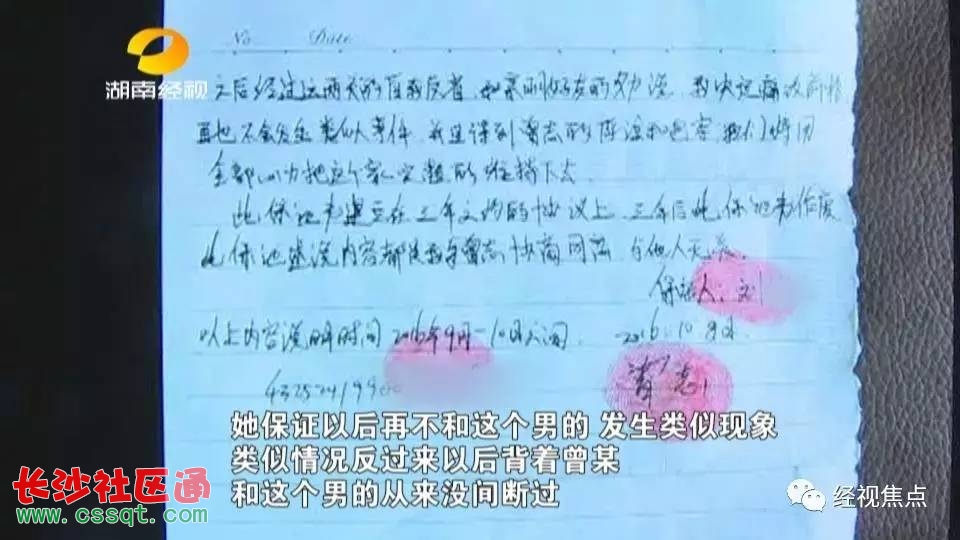 No. Date
湖南经视
之后经过这两天的自我反省,和亲朋好友的劝说,我决定痛改前非
再也不会发生类似事件,并且得到曾志的原谅和包容,我们将用
全部心力把这个家完整的维持下去
此保证书建立在三年之内的协议上,三年后此保证书作废
此保证书内容都是我与曾志协商同意 与他人无关。
保证人:刘
以上内容说明时间 2016年9月-10月之间. 2016.10
曾志
她保证以后再不和这个男的 发生类似现象
类似情况反过来以后背着曾某
和这个男的从来没间断过
长沙社区通
www.cssqt.com
经视焦点